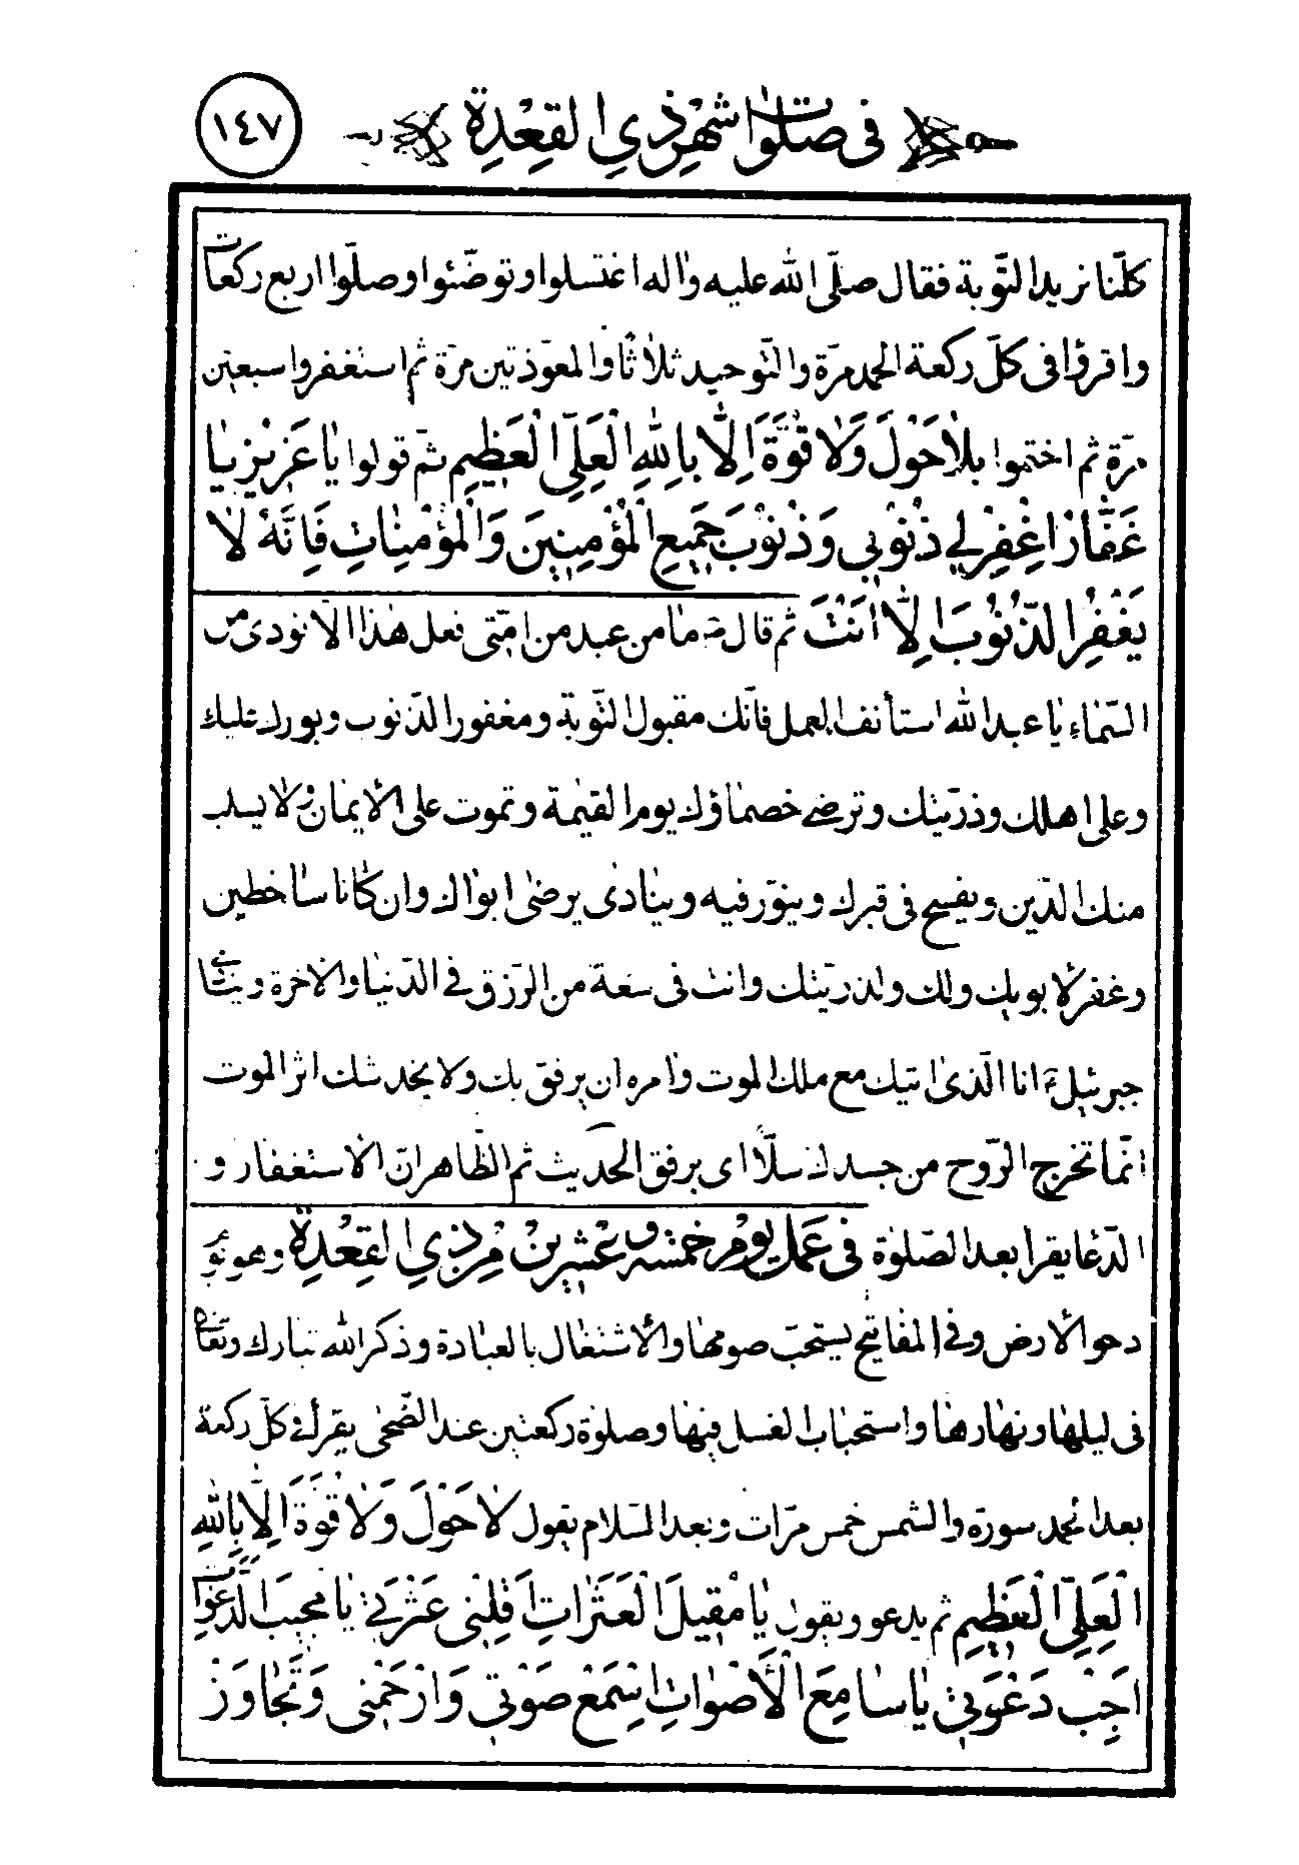 في صلوات شهر ذي القعدة
١٤٧
كلّنا نريد التّوبة فقال صلّى الله عليه واله اغتسلوا وتوضّئوا وصلّوا اربع ركعات
واقرؤا فى كلّ ركعة الحمد مرّة والتّوحيد ثلاثا والمعوّذتين مرّة ثم استغفروا سبعين
مرّة ثم اختموا بِلاٰحَوْلَ وَلاٰ قُوَّةَ اِلّٰا بِاللهِ الْعَلِيِّ الْعَظِيمِ ثم قولوا يٰا عَزِيزُ يٰا
غَفّٰارُ اغْفِرْ لِي ذُنُوبِي وَذُنُوبَ جَمِيعِ الْمُؤْمِنِينَ وَالْمُؤْمِنٰاتِ فَاِنَّهُ لاٰ
يَغْفِرُ الذُّنُوبَ اِلّٰا اَنْتَ ثم قال ما من عبد من امّتى فعل هذا الّا نودى من
السّماء يا عبد الله استأنف العمل فانّك مقبول التّوبة ومغفور الذّنوب وبورك عليك
وعلى اهلك وذرّيتك وترضى خصماؤك يوم القيمة وتموت على الأيمان ولا يسلب
منك الدّين ويفسح فى قبرك وينوّر فيه وينادى يرضى ابواك وان كانا ساخطين
وغفر لأبويك ولك ولذرّيتك وانت فى سعة من الرّزق في الدّنيا والأخرة وينادى
جبرئيل انا الّذى اتيك مع ملك الموت وامره ان يرفق بك ولا يخدشك اثر الموت
انّما تخرج الرّوح من جسدك سلّا اى برفق الحديث ثم الظّاهر انّ الأستغفار و
الدّعا يقرا بعد الصّلوة فى عَمَل يَوْم خمسه وعشرين مِن ذي القِعْدة وهو يوم
دحو الأرض وفي المفاتيح يستحبّ صومها والأشتغال بالعبادة وذكر الله تبارك وتعالى
فى ليلها ونهارها واستحباب الغسل فيها وصلوة ركعتين عند الضّحى يقرأ في كلّ ركعة
بعد الحمد سورة والشمس خمس مرّات وبعد السّلام يقول لاٰ حَوْلَ وَلاٰ قُوَّةَ اِلّٰا بِاللهِ
الْعَلِيِّ الْعَظِيمِ ثم يدعو ويقول يٰا مُقِيلَ الْعَثَرٰاتِ اَقِلْنِي عَثْرَتِي يٰا مُجِيبَ الدَّعَوٰاتِ
اَجِبْ دَعْوَتِي يٰا سٰامِعَ الْأَصْوٰاتِ اِسْمَعْ صَوْتِي وَارْحَمْنِي وَتَجٰاوَزْ